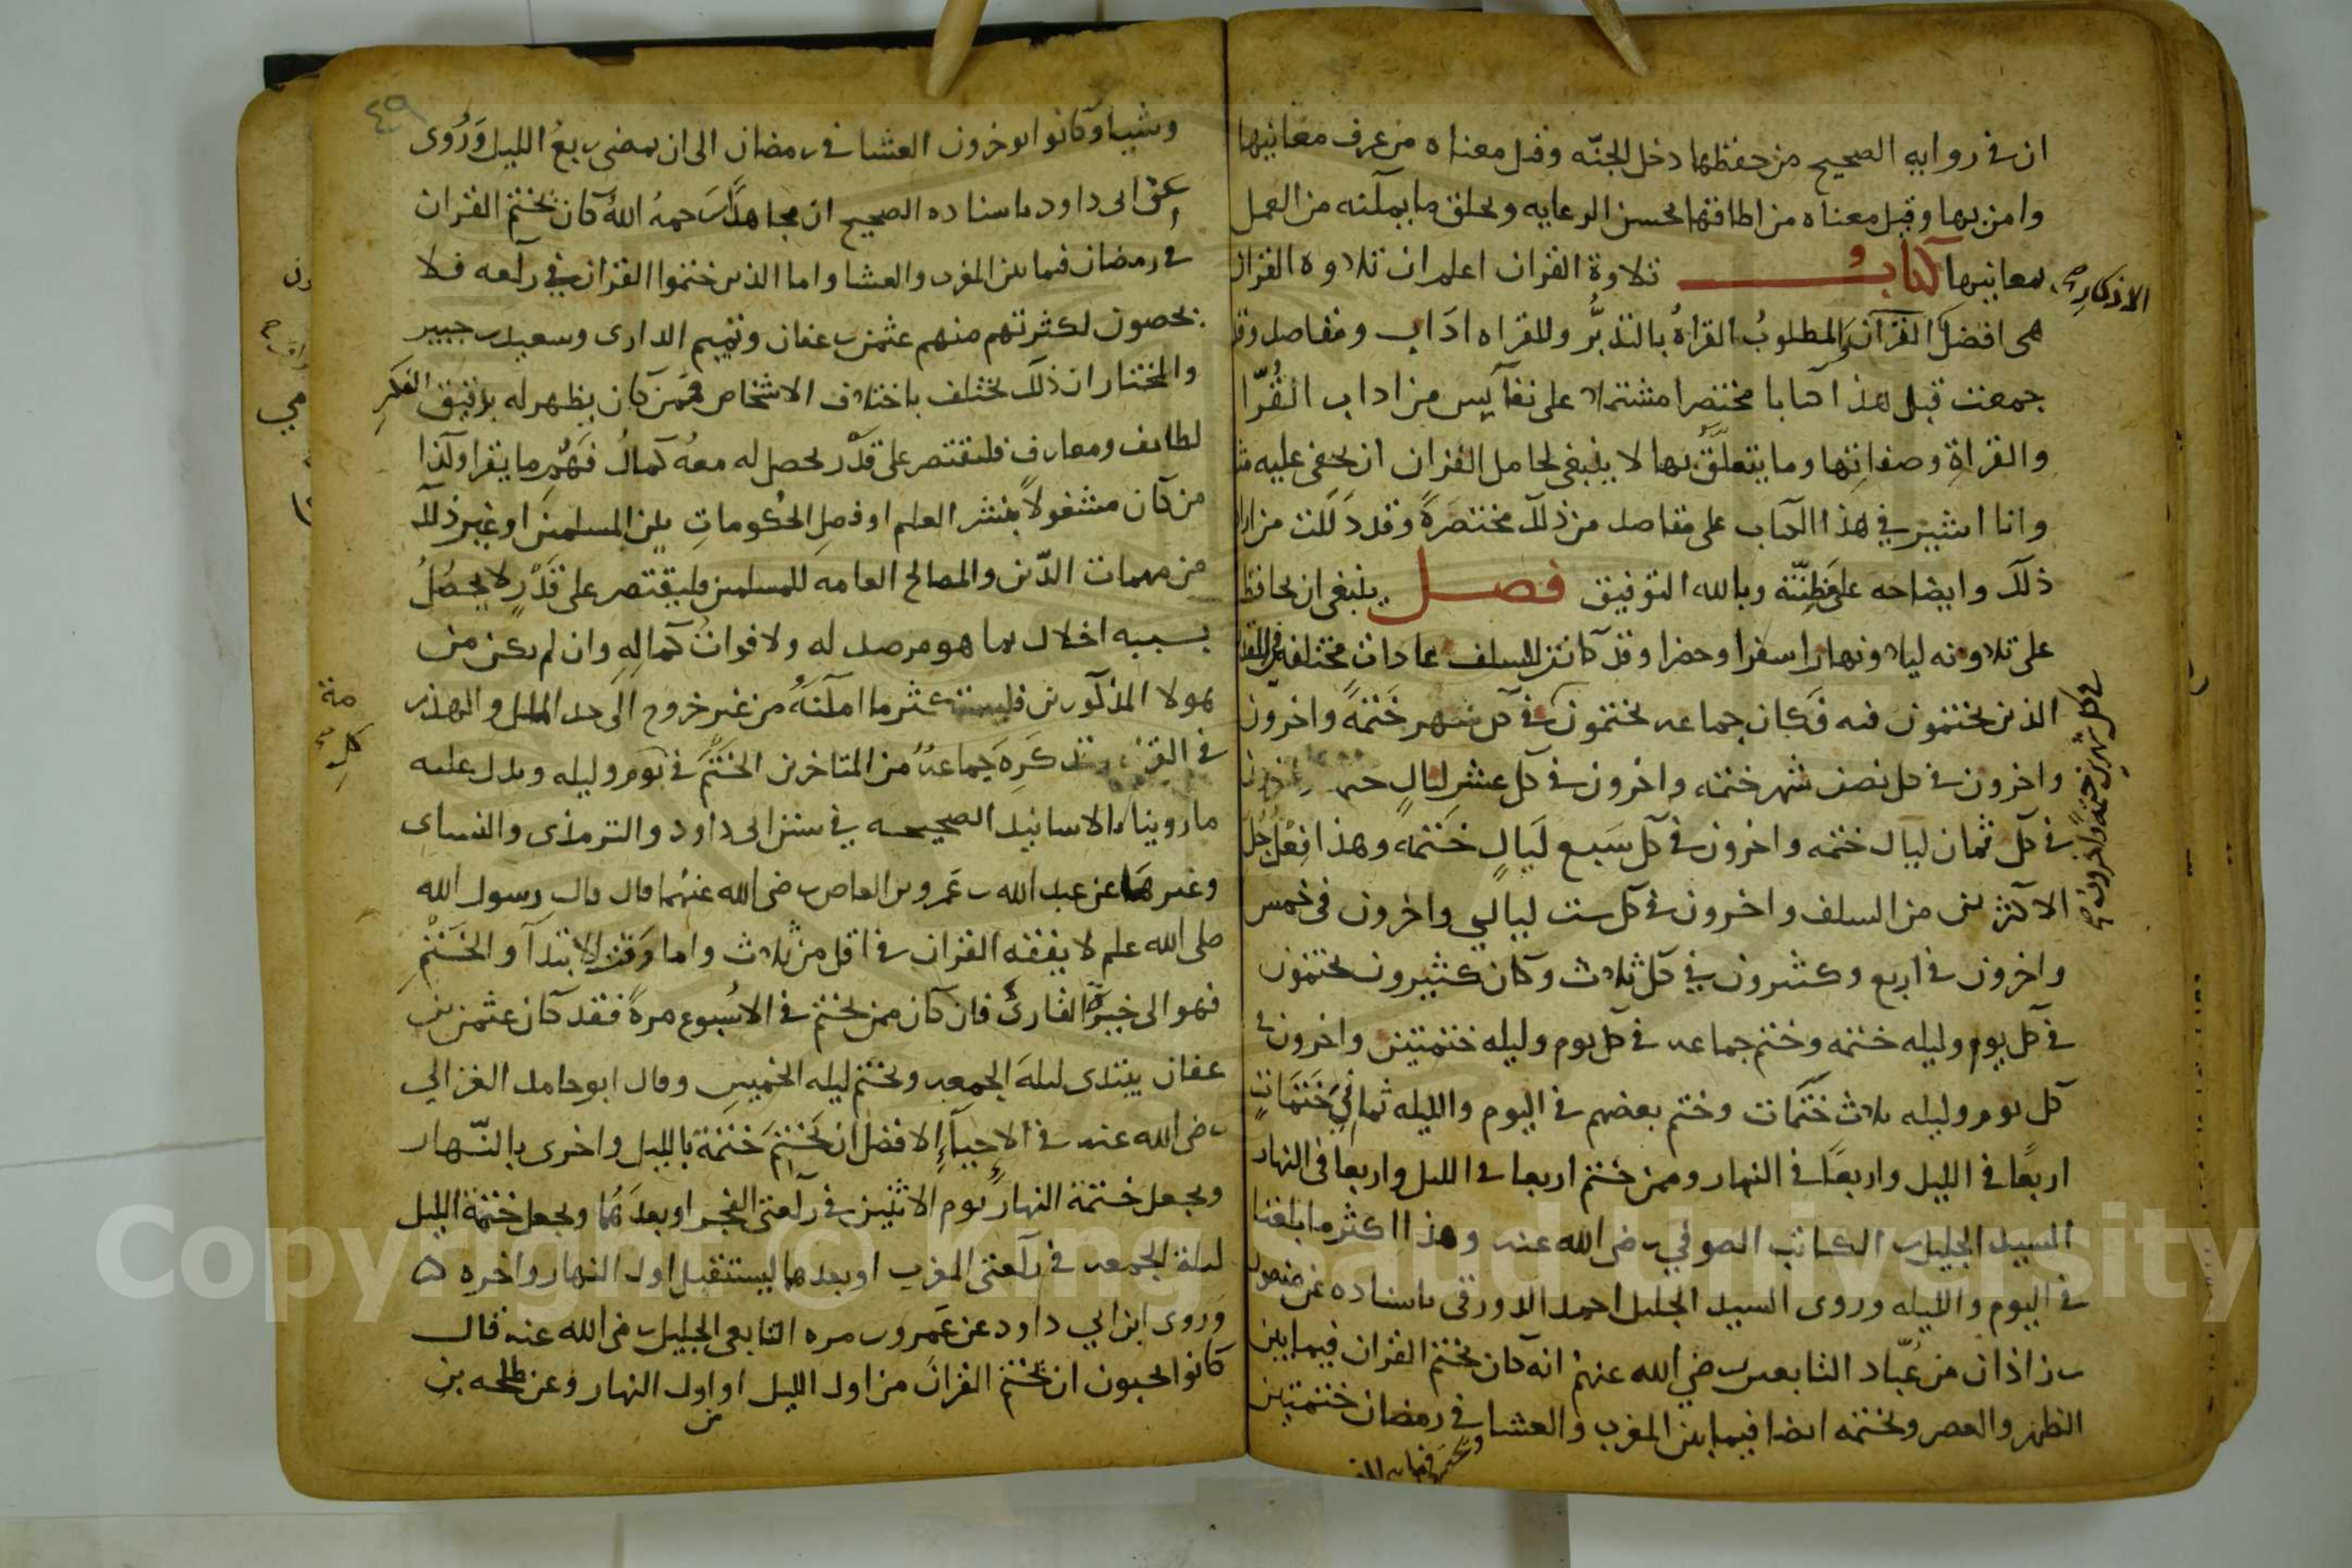 ان في رواية الصحيح من حفظها دخل الجنّه وقيل معناه من عرف معانيها
وامن بها وقيل معناه من اطاقها بحسن الرعايه وتخلق ما يمكنه من العمل
بمعانيها كتابُ تلاوة القران اعلم ان تلاوة القران
الاذكار
هي افضل المطلوبُ القراةُ بالتدبُّر وللقراه اداب ومقاصد وقد
جمعت قبل هذا كتابا مختصرا مشتملا على نفآيس من اداب القُرّا
والقراةِ وصفاتِها وما يتعلَّق بها لا ينبغي لحامل القران ان يخفى عليه
وانا اشير في هذا الكتاب على مقاصد من ذلك مختصرةً وقد دَلَلت من اراد
ذلك وايضاحه على مَظِنّته وبالله التوفيق فصل ينبغي ان يحافظ
على تلاوته ليلا ونهارا سفرا وحضرا وقد كانت للسلف عادات مختلفه في القدر
الذين يختمون فيه فكان جماعه يختمون في كل شهر خَتمةً واخرون
في كل شهرين ختمه واخرون
واخرون في كل نصف شهر ختمه واخرون في كل عشر ليالٍ
في كل ثمان ليال ختمه واخرون في كل سَبع لَيالٍ خَتمةً وهذا فِعْل جُل
الاكثرين من السلف واخرون في كل ست ليالي واخرون في خمس
واخرون في اربع وكثيرون في كل ثلاث وكان كثيرون يختمون
في كل يوم وليله ختمه وختم جماعه في كل يوم وليله ختمتين واخرون في
كل يوم وليله ثلاث خَتَمات وختم بعضهم في اليوم والليله ثماني خَتَمَاتٍ
اربعًا في الليل واربعًا في النهار وممن ختم اربعا في الليل واربعا في النهار
السيد الجليل بن الكاتب الصوفي رضي الله عنه وهذا اكثر ما بلغنا
في اليوم والليله وروى السيد الجليل احمد الدورقي باسناده عن منصور
بن زاذان من عُبّاد التابعين رضي الله عنهم انه كان يختم القران فيما بين
الظهر والعصر ويختمه ايضا فيما بين المغرب والعشا في رمضان ختمتين
٤٩
وشيا وكانوا يوخرون العشا في رمضان الى ان يمضي ربعُ الليل وَرُوى
عن ابي داود باسناده الصحيح ان مجاهدًا رَحمهُ اللهُ كان يختم القران
في رمضان فيما بين المغرب والعشا واما الذين ختموا القران في ركعه فلا
يحصون لكثرتهم منهم عثمن بن عفان وتميم الداري وسعيد بن جبير
والمختار ان ذلك يختلف باختلاف الاشخاص فمَن كان يظهر له بدقيق الفكرِ
لطائف ومعارف فليقتصر على قدْر يحصل له معهُ كمالُ فَهْم ما يقرا وكذا
من كان مشغولًا بنشر العلم او فصلِ الحُكوماتِ بين المسلمين او غير ذلك
من مهمات الدّين والمصالح العامه للمسلمين فليقتصر على قَدْرٍ لا يحصُلُ
بسببه اخلال بما هو مرصد له ولا فوات كمالِهِ وان لم يكن من
هولا المذكورين فليستكثر ما امكنهُ من غير خروج الى حد الملل والهذرمة
في القراة وقد كَرِهَ جماعةٌ من المتاخرين الختمَ في يوم وليله ويدل عليه
ما روينا بالاسانيد الصحيحه في سنن ابي داود والترمذي والنساى
وغيرها عن عبد الله بن عَمرو بن العاص رضي الله عنهما قال قال رسول الله
صلى الله علم لا يفقه القران في اقل من ثلاث واما وَقت الابتدآ والخَتْمِ
فهو الى خيرة القارئ فان كان ممن يختم في الاسبوع مرةً فقد كان عثمن بن
عفان يبتدى ليلةَ الجمعه ويختم ليله الخميس وقال ابو حامد الغزالي
رضي الله عنه في الاحيآءِ الافضل ان يَختم خَتمة بالليل واخرى بالنّهار
ويجعل ختمة النهار يوم الاثنين في ركعتي الفجر او بعدَهُما ويجعل ختمة الليل
ليلة الجمعه في ركعتي المغرب او بعدهما ليستقبل اول النهار واخره
وَروى ابن ابي داود عن عَمرو بن مره التابعي الجليل رضي الله عنه قال
كانوا يحبون ان يُختم القرانُ من اول الليل او اول النهار وعن طلحه بن
من